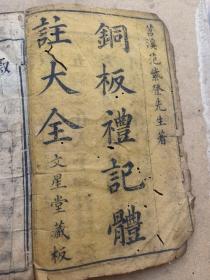 苕溪范紫登先生著
銅板禮記體
註大全
文星堂藏板